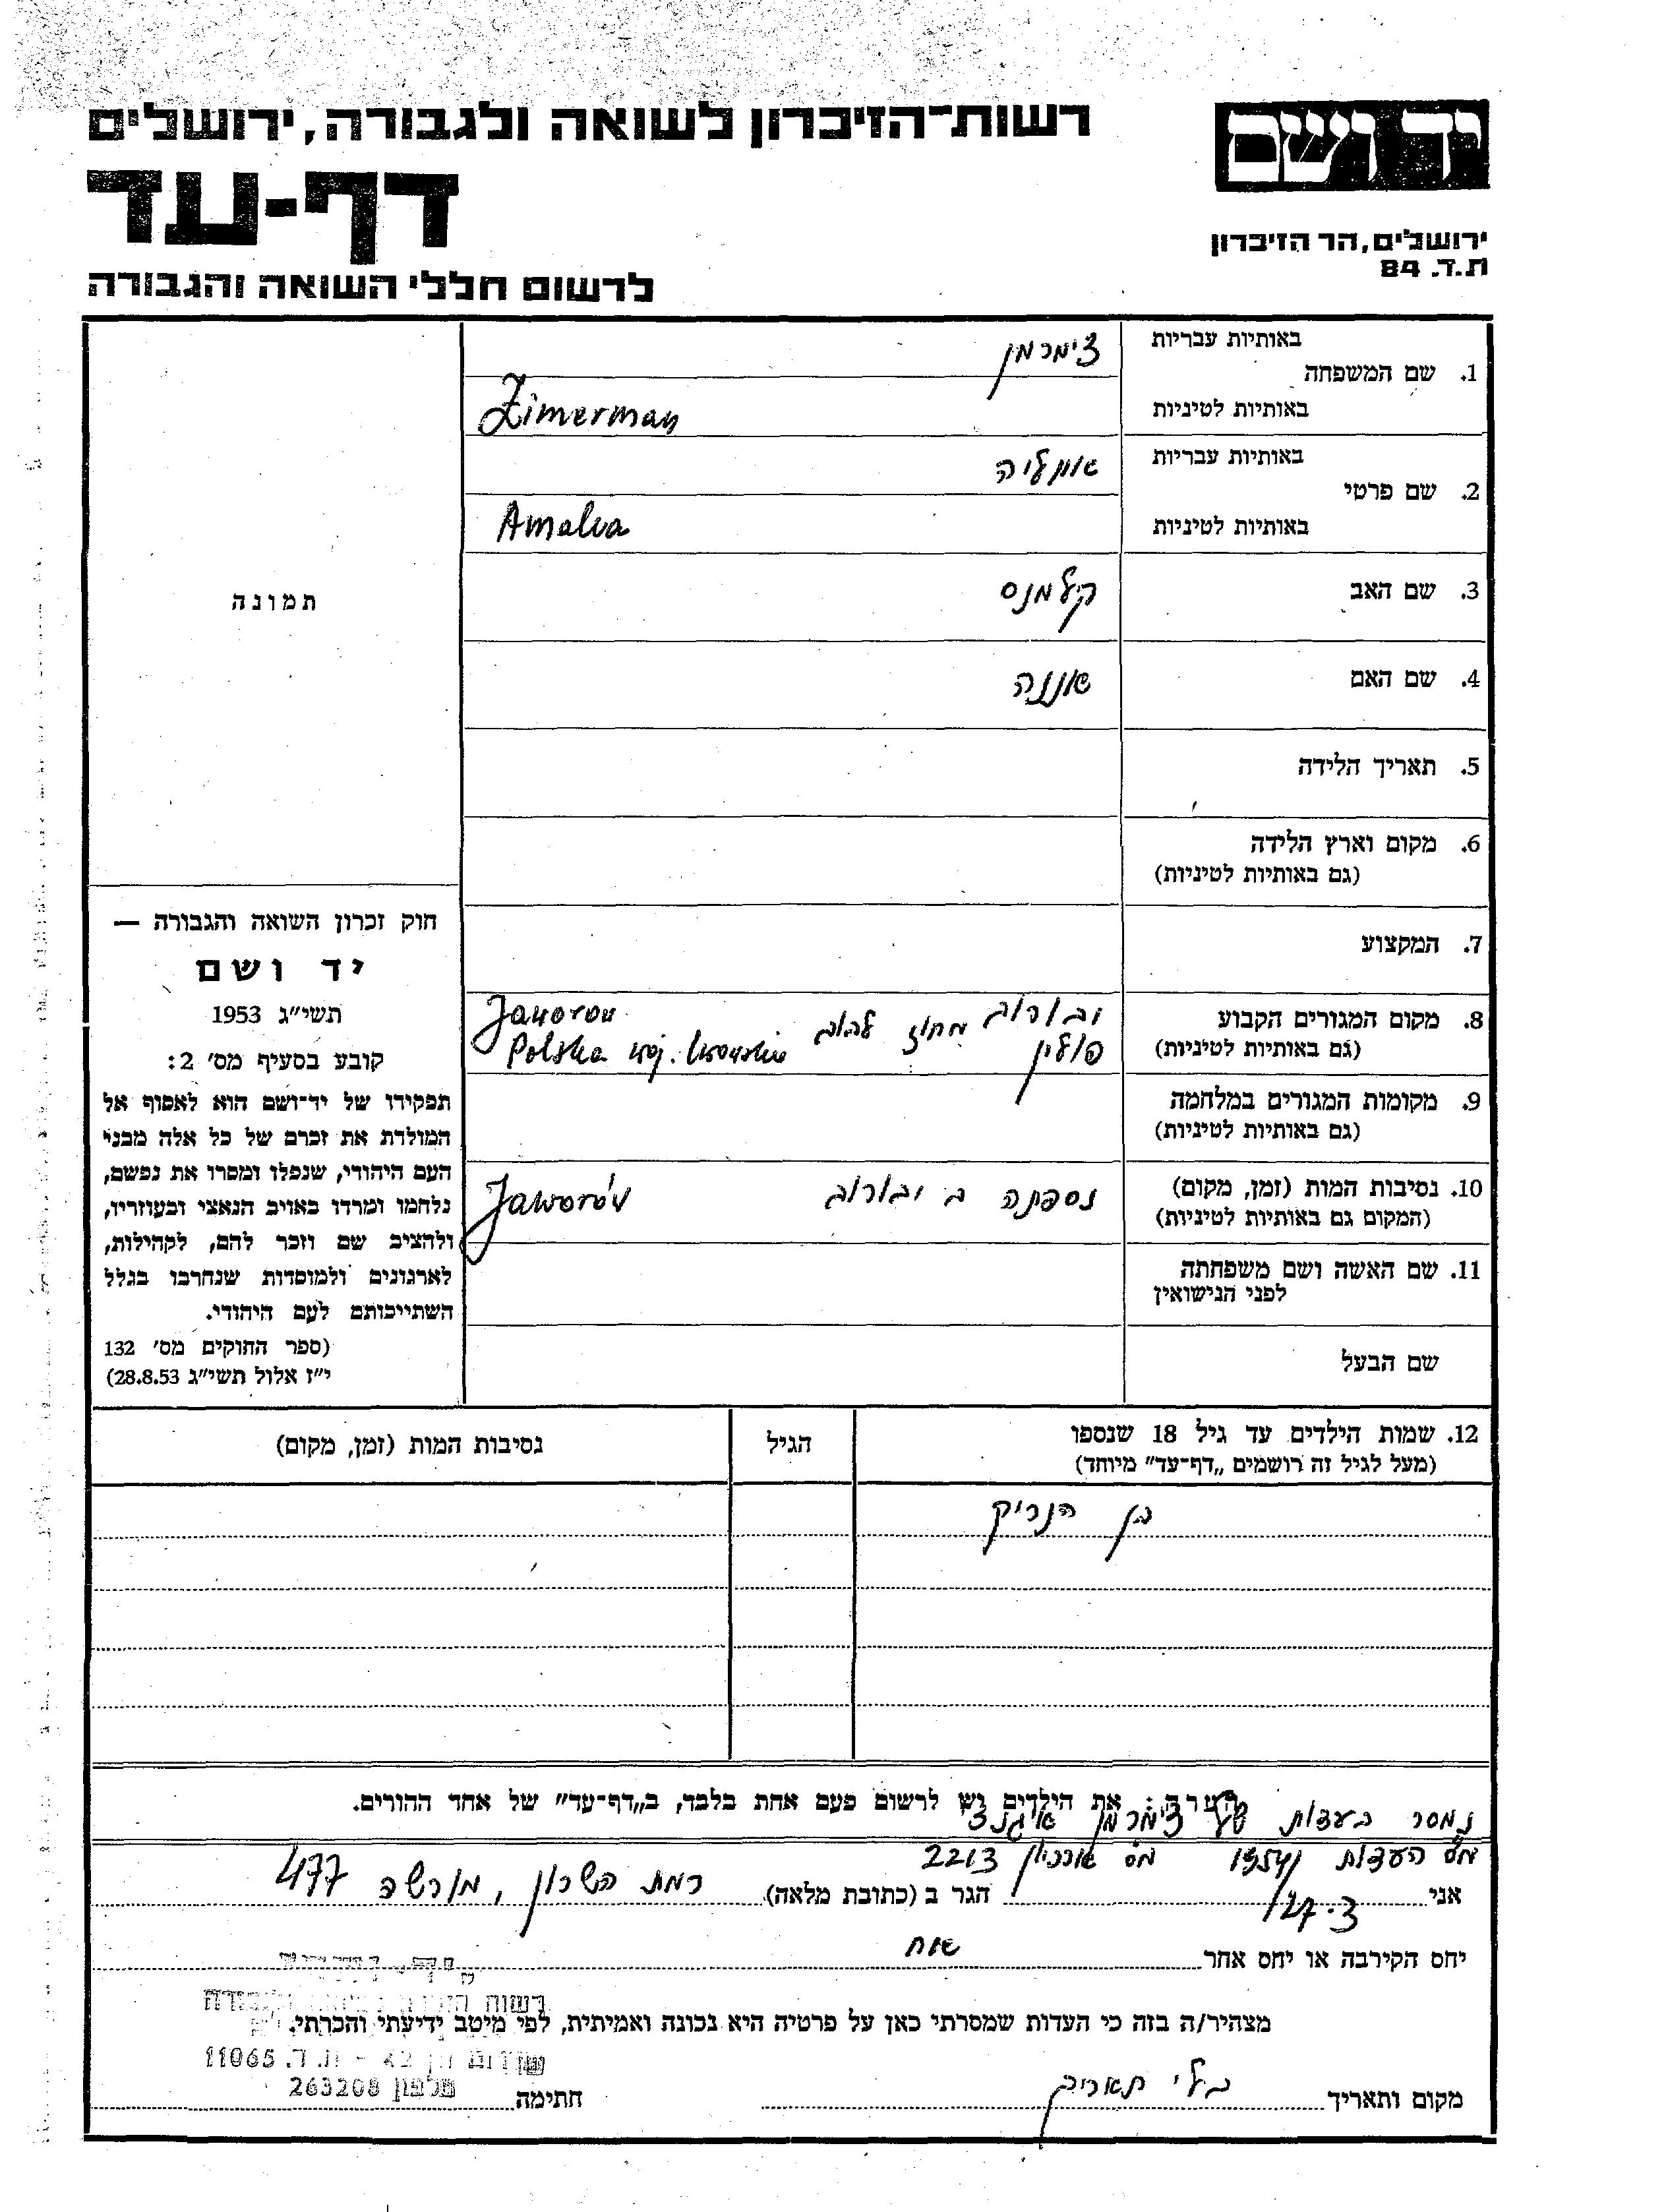 רשות־הזיכרון לשואה ולגבורה, ירושלים
יד ושם
דף-עד
ירושלים, הר הזיכרון
ת.ד. 84
לרשום חללי השואה והגבורה
באותיות עבריות
1. שם המשפחה
צימרמן
באותיות לטיניות
Zimerman
באותיות עבריות
2. שם פרטי
אמליה
באותיות לטיניות
Amalia
תמונה
3. שם האב
קלמנס
4. שם האם
אננה
5. תאריך הלידה
6. מקום וארץ הלידה
(גם באותיות לטיניות)
7. המקצוע
8. מקום המגורים הקבוע
(גם באותיות לטיניות)
יבורוב מחוז לבוב Jaworow
פולין Polska woj. lwowskie
9. מקומות המגורים במלחמה
(גם באותיות לטיניות)
10. נסיבות המות (זמן, מקום)
(המקום גם באותיות לטיניות)
נספתה ב יבורוב Jaworów
11. שם האשה ושם משפחתה
לפני הנישואין
שם הבעל
חוק זכרון השואה והגבורה —
יד ושם
תשי״ג 1953
קובע בסעיף מס׳ 2:
תפקידו של יד־ושם הוא לאסוף אל
המולדת את זכרם של כל אלה מבני
העם היהודי, שנפלו ומסרו את נפשם,
נלחמו ומרדו באויב הנאצי ובעוזריו,
ולהציב שם וזכר להם, לקהילות,
לארגונים ולמוסדות שנחרבו בגלל
השתייכותם לעם היהודי.
(ספר החוקים מס׳ 132
י״ז אלול תשי״ג 28.8.53)
12. שמות הילדים עד גיל 18 שנספו
(מעל לגיל זה רושמים „דף־עד״ מיוחד)
הגיל
נסיבות המות (זמן, מקום)
בן הנריק
הערה: את הילדים יש לרשום פעם אחת בלבד, ב„דף־עד״ של אחד ההורים.
נמסר בעדות של צימרמן
מס העדות מס ארכיון 2213
אני 3.127 הגר ב (כתובת מלאה) רמת השרון, מורשה 477
יחס הקירבה או יחס אחר אח
מצהיר/ה בזה כי העדות שמסרתי כאן על פרטיה היא נכונה ואמיתית, לפי מיטב ידיעתי והכרתי.
ת.ד. 11065
טלפון 263208
מקום ותאריך בלי תאריך
חתימה